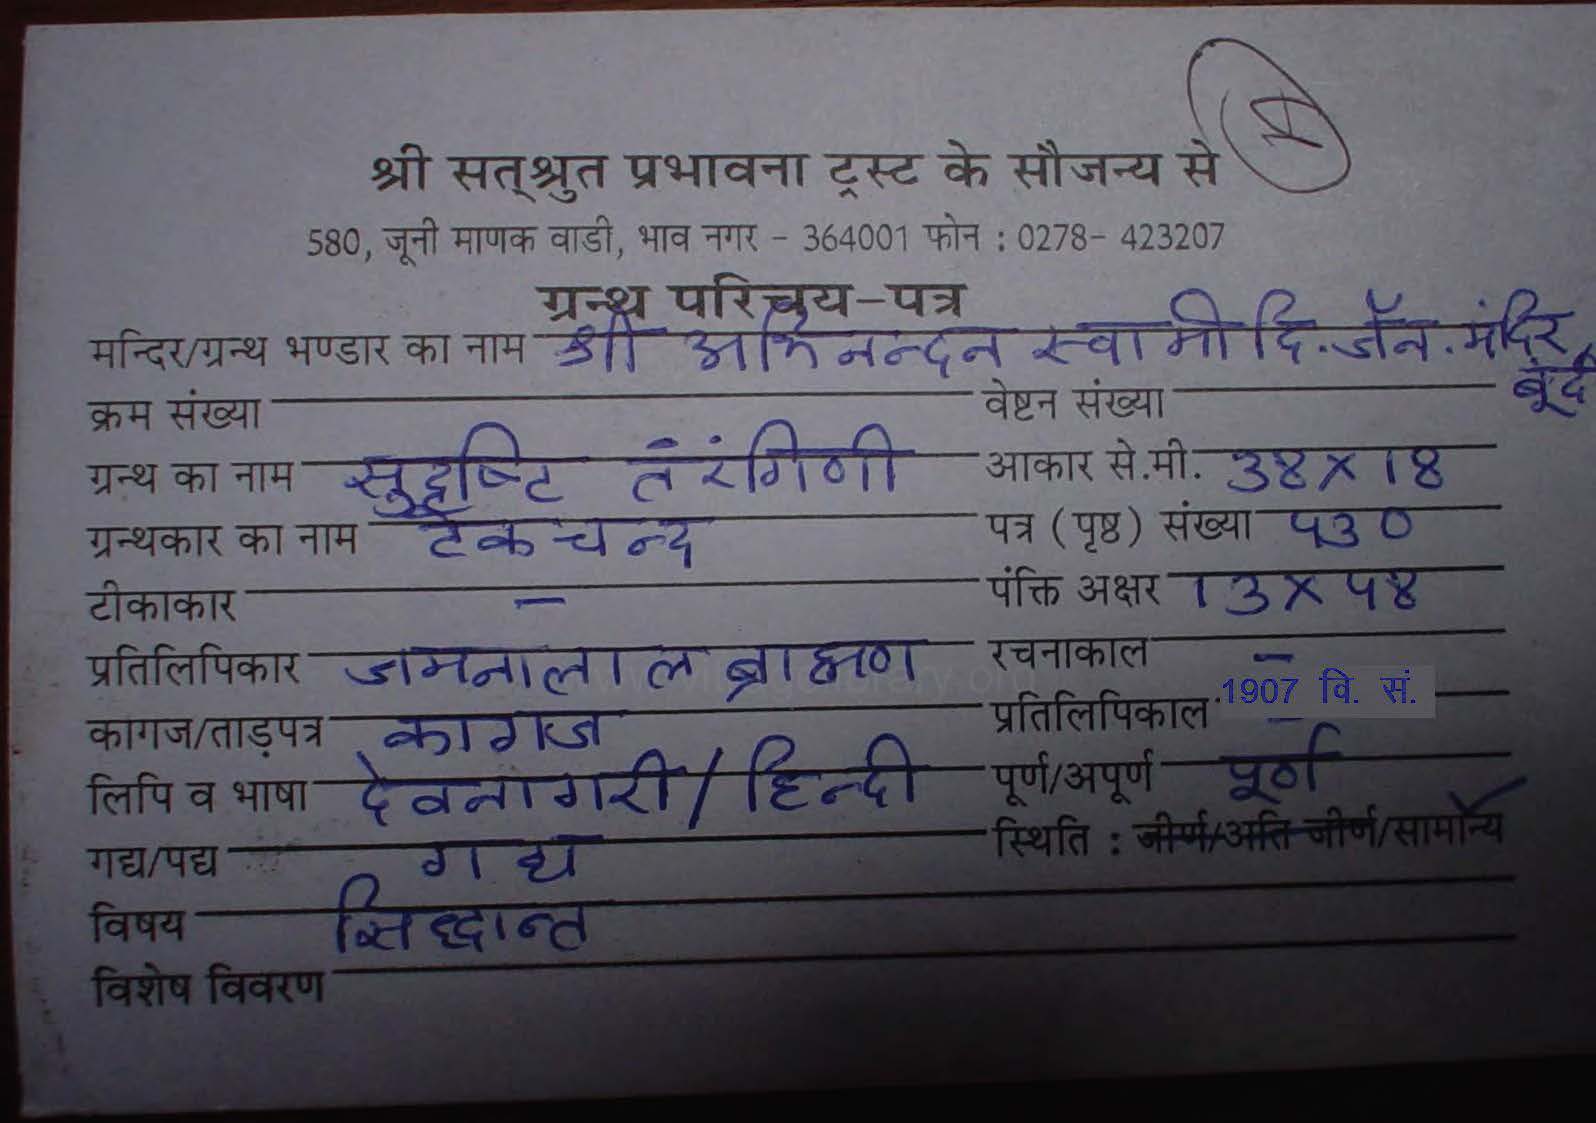 श्री सत्श्रुत प्रभावना ट्रस्ट के सौजन्य से
580, जूनी माणक वाडी, भाव नगर - 364001 फोन : 0278- 423207
ग्रन्थ परिचय-पत्र
मन्दिर/ग्रन्थ भण्डार का नाम श्री अभिनन्दन स्वामी दि. जैन. मंदिर,
क्रम संख्या वेष्टन संख्या
ग्रन्थ का नाम सुदृष्टि तरंगिणी आकार से.मी. 38x18
ग्रन्थकार का नाम टेकचन्द पत्र (पृष्ठ) संख्या ५३०
टीकाकार - पंक्ति अक्षर 13x
प्रतिलिपिकार जमनालाल ब्राह्मण रचनाकाल -
कागज/ताड़पत्र कागज प्रतिलिपिकाल 1907 वि. सं.
लिपि व भाषा देवनागरी/हिन्दी पूर्ण/अपूर्ण पूर्ण
गद्य/पद्य गद्य स्थिति : जीर्ण/अति जीर्ण/सामान्य
विषय सिद्धान्त
विशेष विवरण